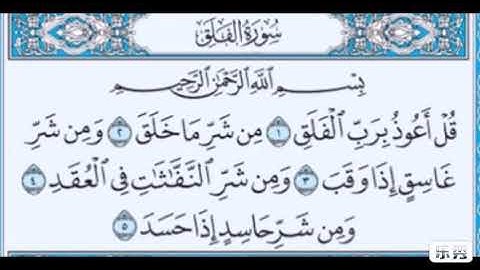 سُورَةُ الفَلَقِ
بِسْمِ اللَّهِ الرَّحْمَٰنِ الرَّحِيمِ
قُلْ أَعُوذُ بِرَبِّ الْفَلَقِ ١ مِن شَرِّ مَا خَلَقَ ٢ وَمِن شَرِّ
غَاسِقٍ إِذَا وَقَبَ ٣ وَمِن شَرِّ النَّفَّاثَاتِ فِي الْعُقَدِ ٤
وَمِن شَرِّ حَاسِدٍ إِذَا حَسَدَ ٥
乐秀